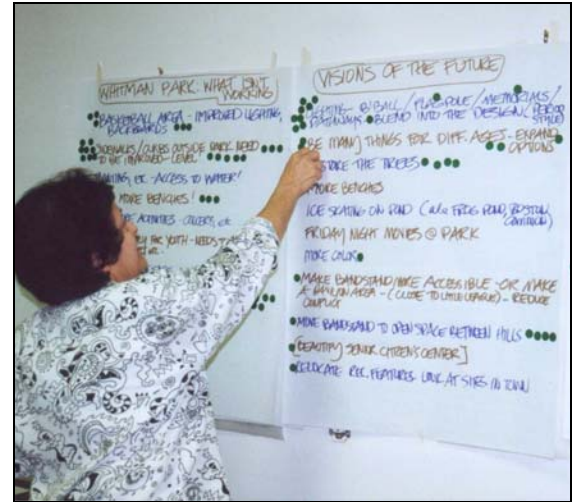 WHITMAN PARK: WHAT ISN'T
WORKING
BASKETBALL AREA - IMPROVED LIGHTING,
BACKBOARDS
SIDEWALKS/CURBS OUTSIDE PARK NEED
TO BE IMPROVED - LEVEL!
ETC. - ACCESS TO WATER!
MORE BENCHES!
ACTIVITIES - CONCERTS, etc
FOR YOUTH - NEEDS
VISIONS OF THE FUTURE
LIGHTING - B/BALL / FLAGPOLE / MEMORIALS /
PATHWAYS BLEND INTO THE DESIGN (PERIOD
STYLE)
BE MANY THINGS FOR DIFF. AGES - EXPAND
OPTIONS
THE TREES
MORE BENCHES
ICE SKATING ON POND (a la FROG POND, BOSTON
COMMON)
FRIDAY NIGHT MOVIES @ PARK
MORE COLOR
MAKE BANDSTAND MORE ACCESSIBLE - OR MAKE
A PAVILION AREA - (CLOSE TO LITTLE LEAGUE) - REDUCE
CONFLICT
MOVE BANDSTAND TO OPEN SPACE BETWEEN HILLS
[BEAUTIFY SENIOR CITIZENS CENTER]
RELOCATE REC. FEATURES - LOOK AT SITES IN TOWN